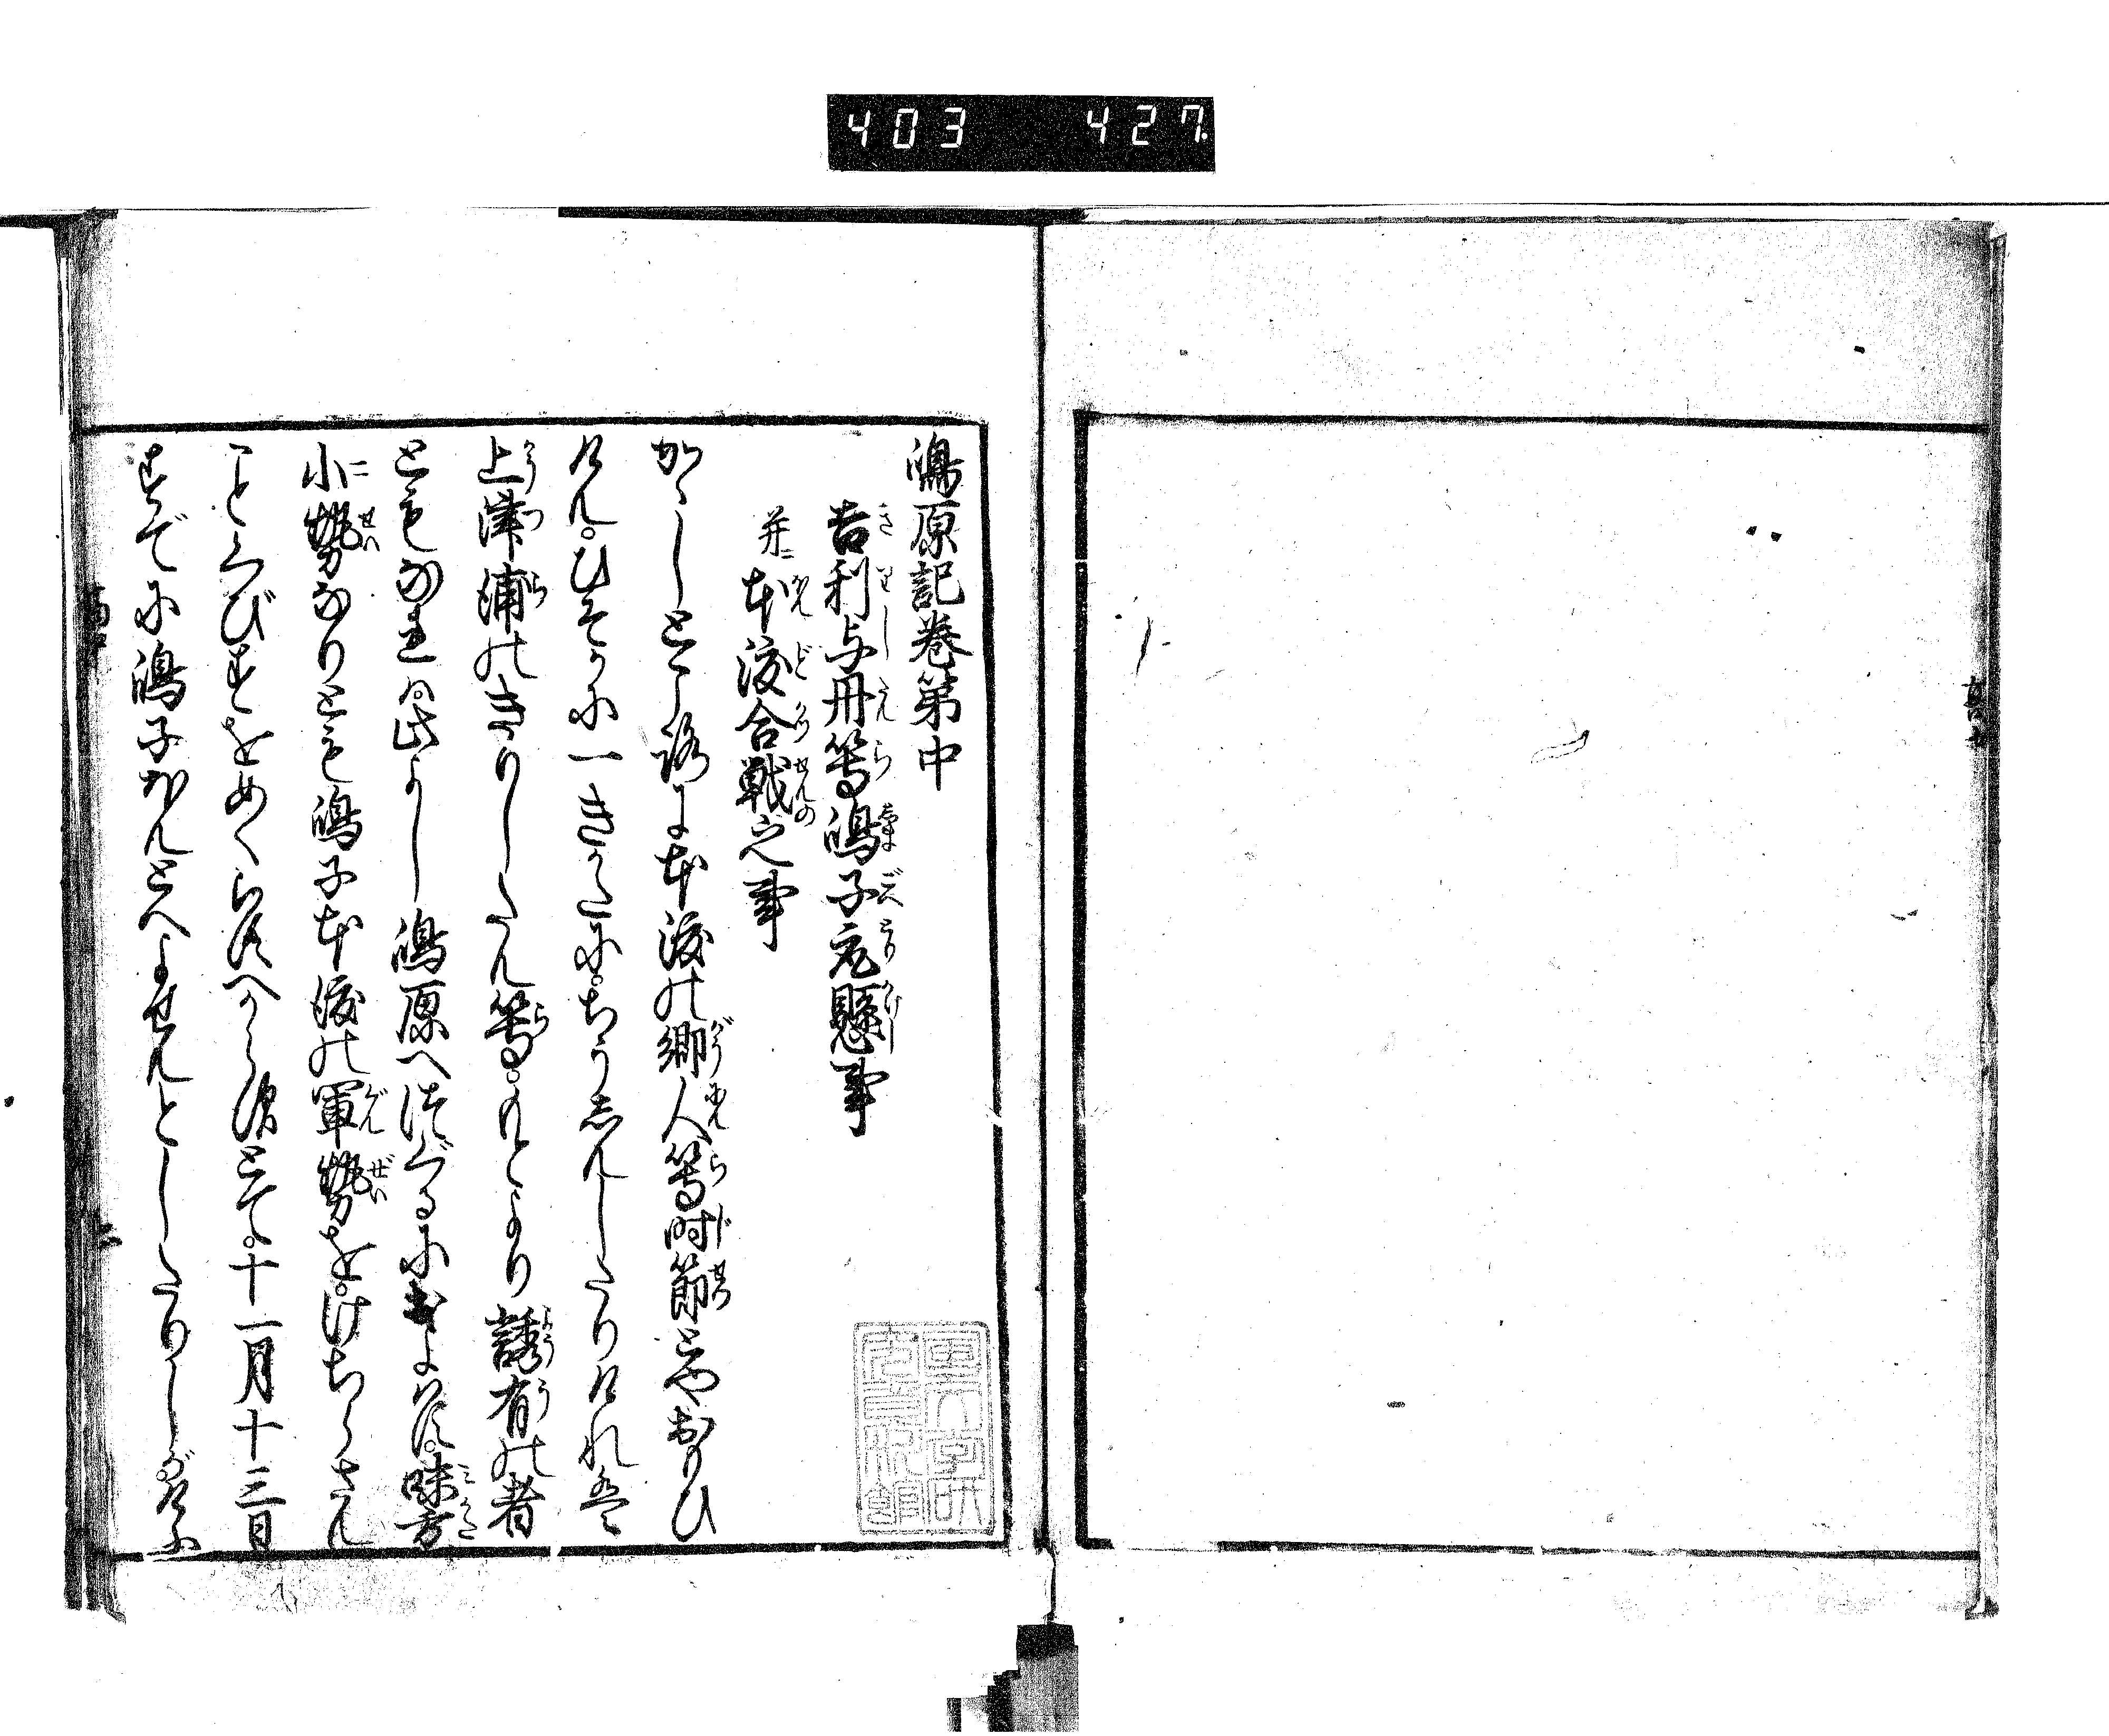 403 427
嶋原記巻第中
吉利与丹等嶋子え懸事
并ニ本渡合戦之事
かゝしところに本渡の郷人等時節とやおもひ
けん。ひそかに一きかたに。ちうしんしたりけれ共
上津浦のきりしたん等。もとより誘有の者
ともなれは。此よし嶋原へつぐるに
味方
小勢なりとも嶋子本渡の軍勢を。けちらさん
ことくびすをめくらすへからずとて。十一月十三日
すでに嶋子ほんとへよせんとしたりしがけふ